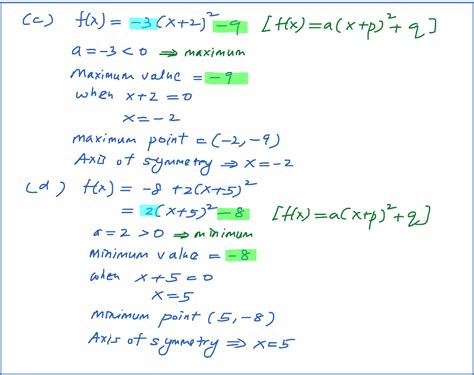 (c) f(x) = -3(x+2)² -9 [f(x)=a(x+p)²+q]
a = -3 < 0 ⇒ maximum
Maximum value = -9
when x+2 = 0
x = -2
maximum point = (-2, -9)
Axis of symmetry ⇒ x = -2
(d) f(x) = -8 + 2(x+5)²
= 2(x+5)² -8 [f(x)=a(x+p)²+q]
a = 2 > 0 ⇒ minimum
Minimum value = -8
when x+5 = 0
x = 5
Minimum point (5, -8)
Axis of symmetry ⇒ x = 5